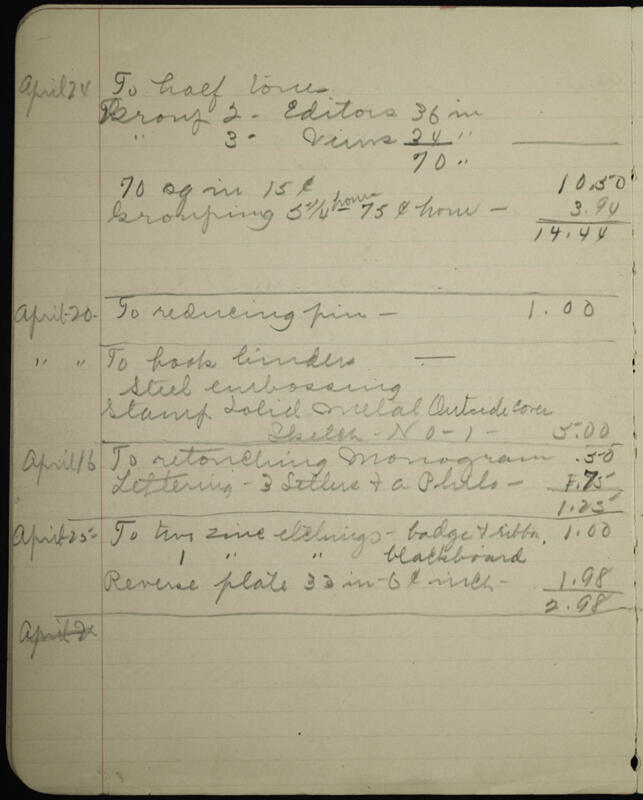 April 24 To half tones
Group 2 - Editors 36 in
" 3 - Views 34 "
70 "
70 sq in 15 ¢ 10.50
Grouping 5 1/4 hours 75 ¢ hour - 3.94
14.44
April 20 - To reducing pin - 1.00
" " To book binders —
Steel embossing
Stamp Solid Metal Outside cover
Sketch - No - 1 - 5.00
April 16 To retouching Monogram .50
Lettering - 3 Setlers & a Philo - .75
1.25
April 25 - To two zinc etchings - badge & ribbon, 1.00
1 " " blackboard
Reverse plate 33 in - 6 ¢ inch - 1.98
2.98
April 2